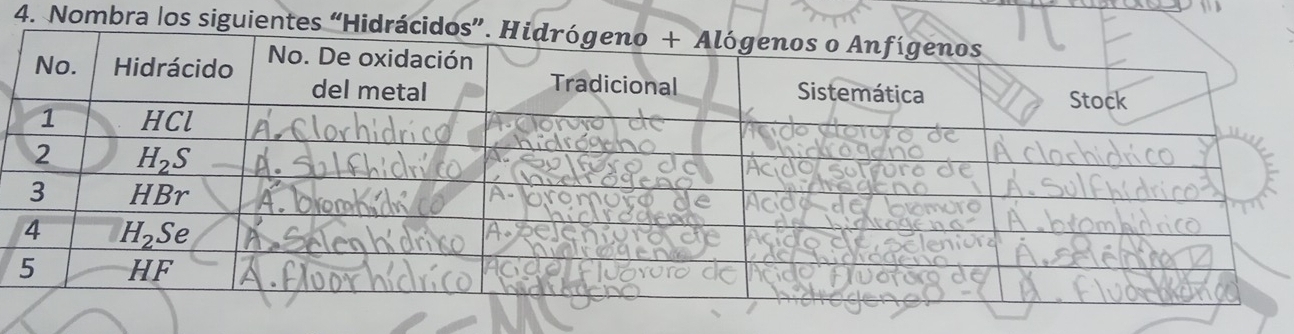 4. Nombra los siguientes “Hidrácidos”. Hidrógeno + Alógenos o Anfígenos
No. Hidrácido No. De oxidación del metal Tradicional Sistemática Stock
1 HCl A. Clorhidrico A. cloruro de hidrógeno Acido cloruro de hidrogeno A clorhidrico
2 H₂S A. Sulfhidrico A. sulfuro de hidrogeno Acido sulfuro de hidrogeno A. Sulfhidrico
3 HBr A. bromhidrico A. bromuro de hidrogeno Acido de bromuro de hidrogeno A. bromhidrico
4 H₂Se A. Selenhidrico A. seleniuro de hidrogeno Acido de seleniuro de hidrogeno A.
5 HF A. fluorhidrico Acido fluoruro de hidrogeno Acido fluoruro de hidrogeno A.